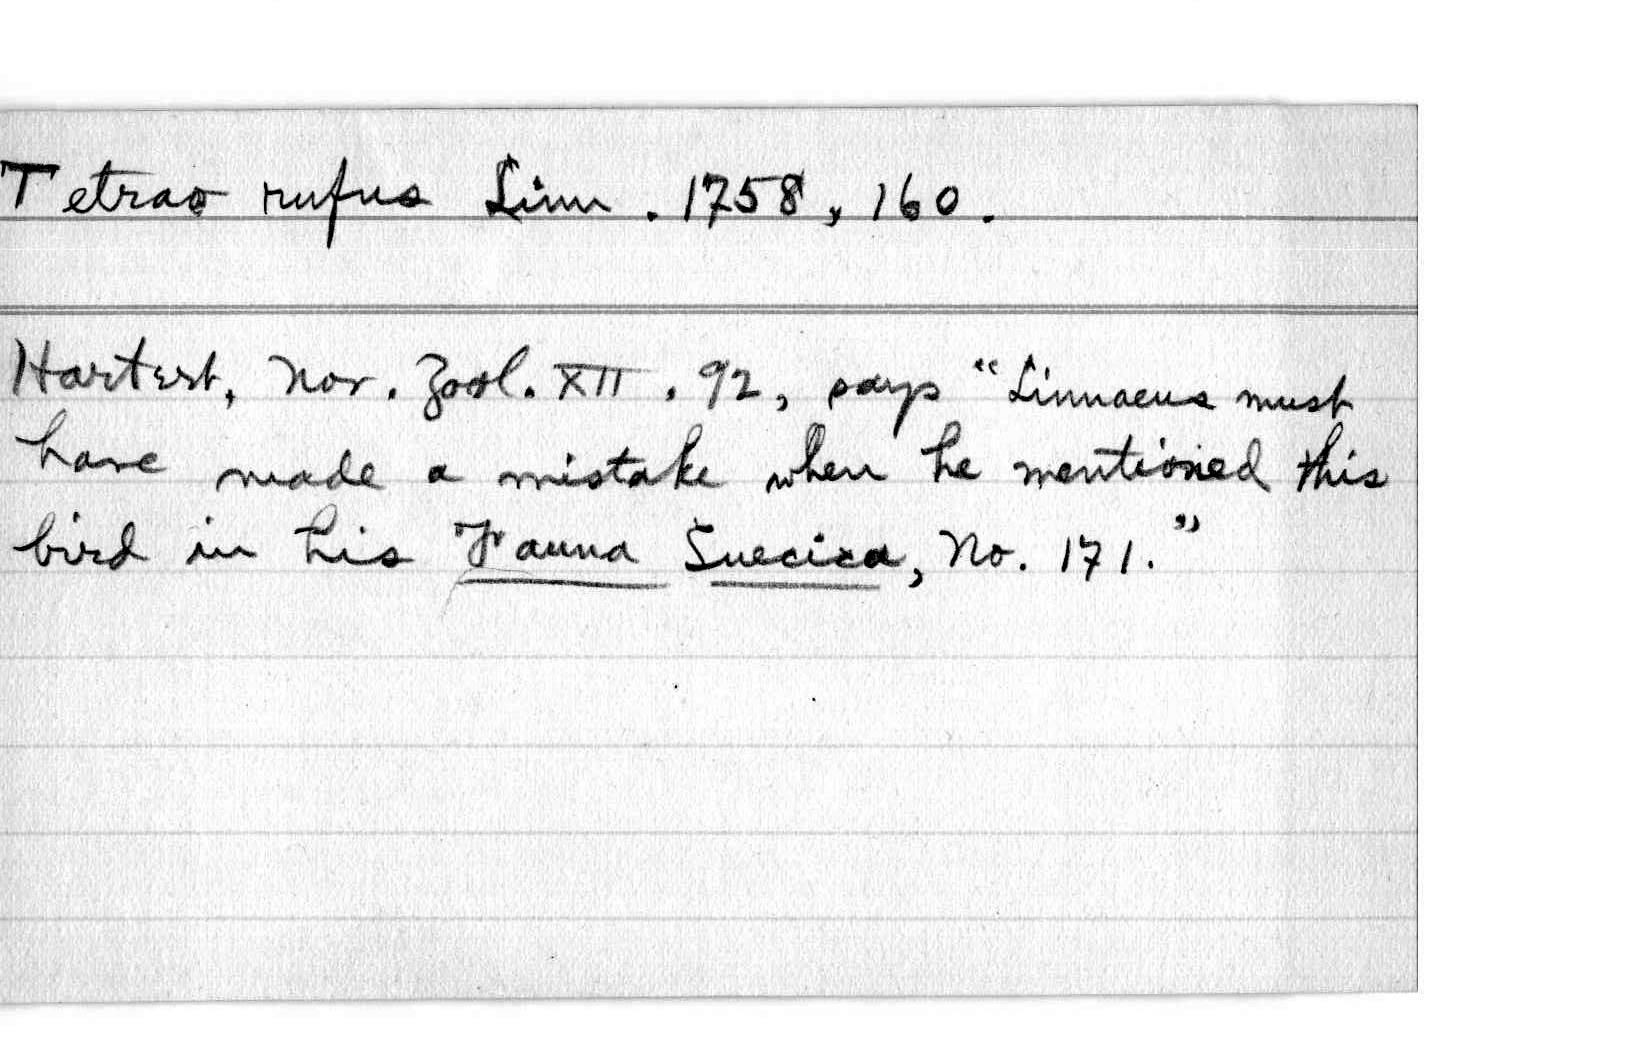 Tetrao rufus Linn. 1758, 160.
Hartert, Nov. Zool. XII. 92, says "Linnaeus must
have made a mistake when he mentioned this
bird in his Fauna Suecica, No. 171."